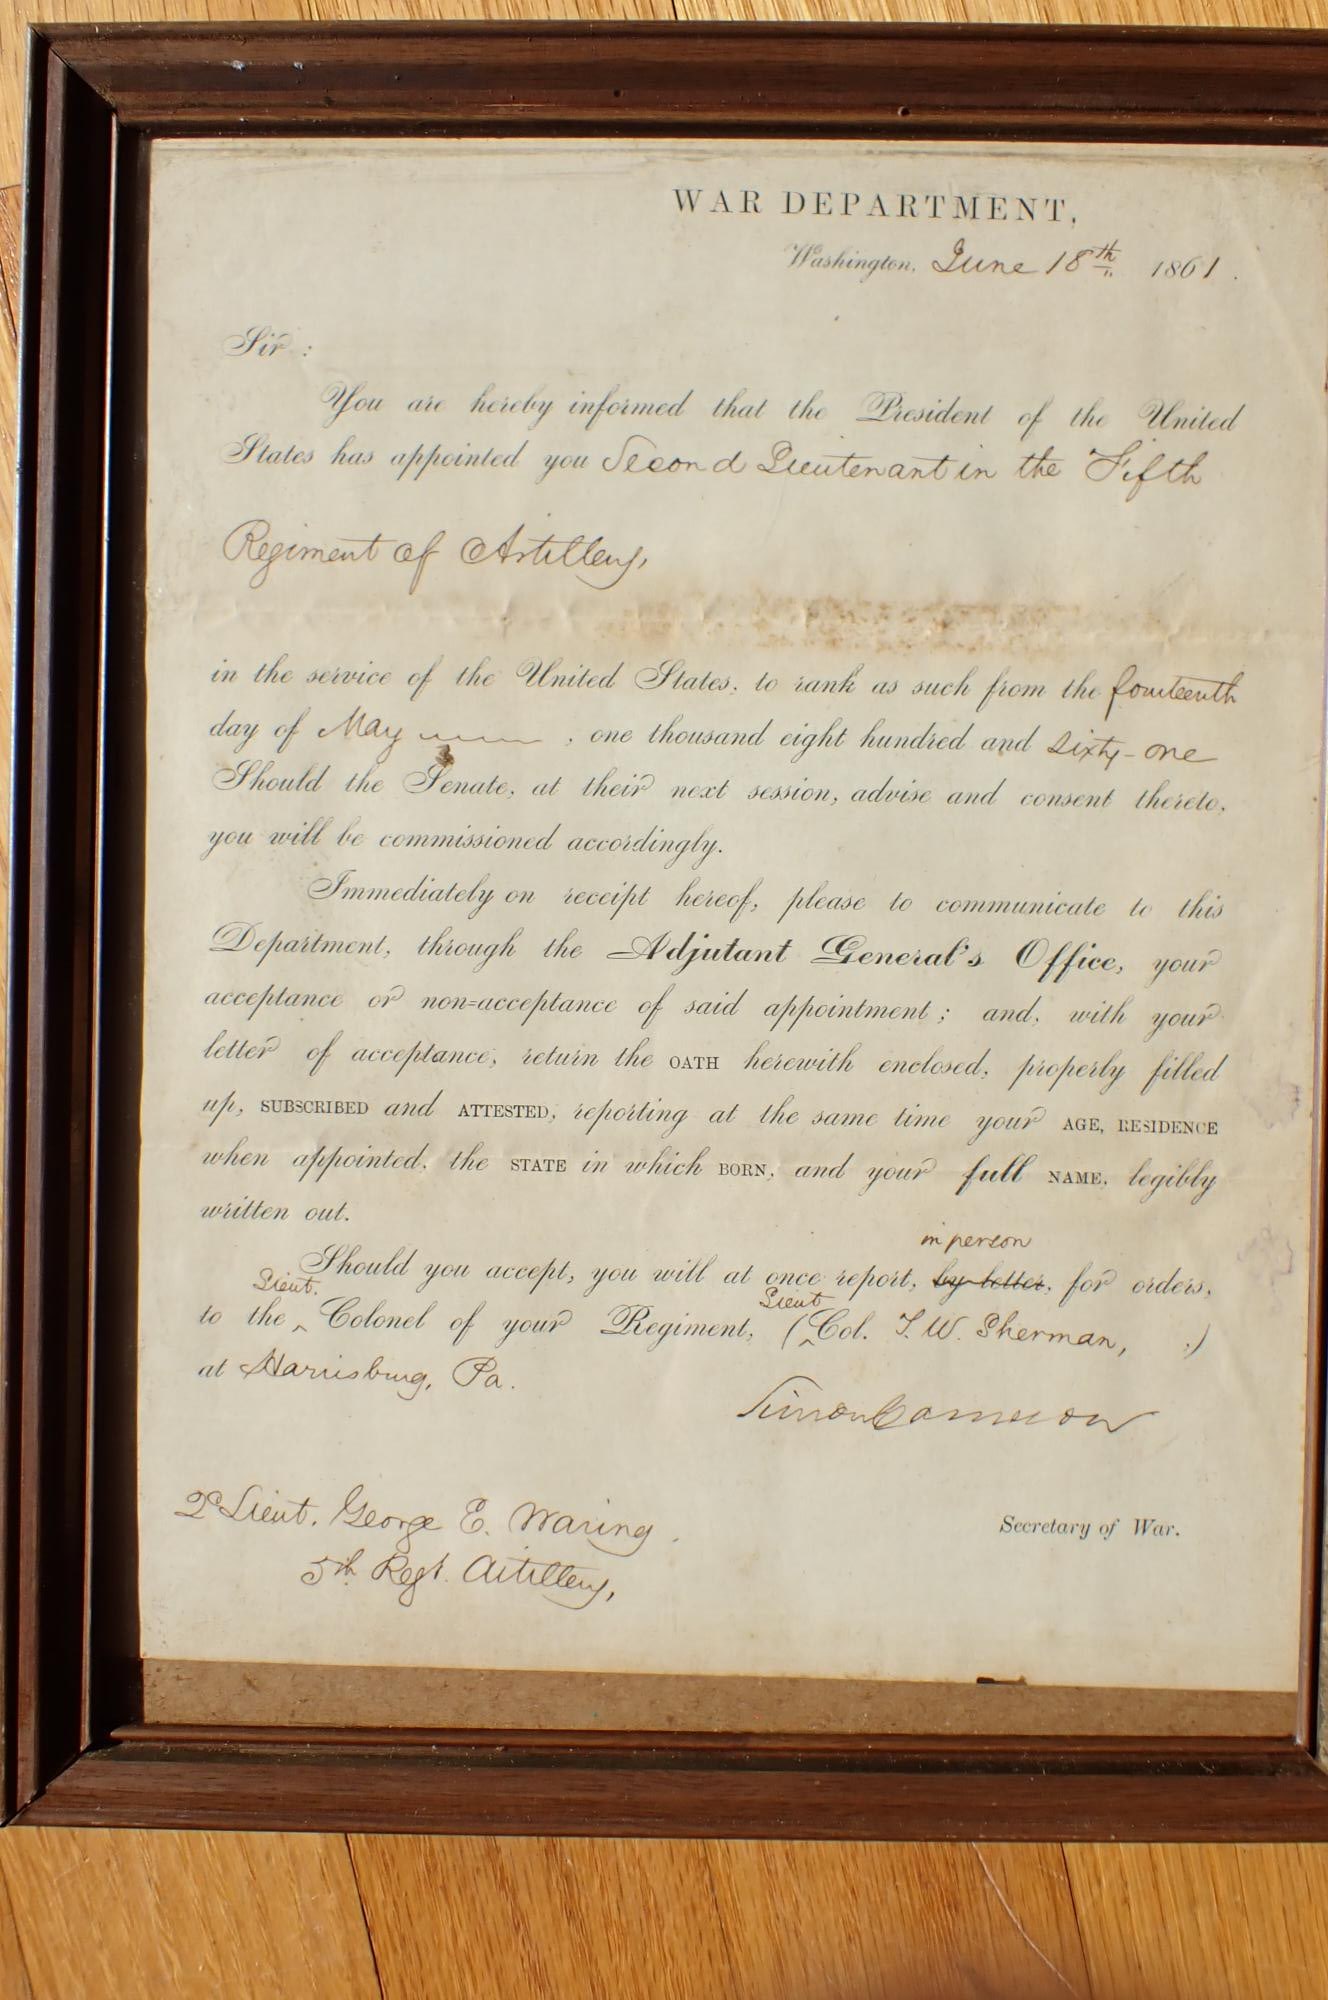 WAR DEPARTMENT,
Washington, June 18th 1861.
Sir :
You are hereby informed that the President of the United
States has appointed you Second Lieutenant in the Fifth
Regiment of Artillery,
in the service of the United States, to rank as such from the fourteenth
day of May , one thousand eight hundred and sixty-one
Should the Senate, at their next session, advise and consent thereto,
you will be commissioned accordingly.
Immediately on receipt hereof, please to communicate to this
Department, through the Adjutant General's Office, your
acceptance or non=acceptance of said appointment ; and, with your
letter of acceptance, return the OATH herewith enclosed, properly filled
up, SUBSCRIBED and ATTESTED, reporting at the same time your AGE, RESIDENCE
when appointed, the STATE in which BORN, and your full NAME, legibly
written out.
in person
Should you accept, you will at once report, by letter, for orders,
Lieut. Lieut
to the ^ Colonel of your Regiment, (^ Col. T. W. Sherman, .)
at Harrisburg, Pa.
Simon Cameron
2d Lieut. George E. Waring.
Secretary of War.
5th Regt. Artillery,